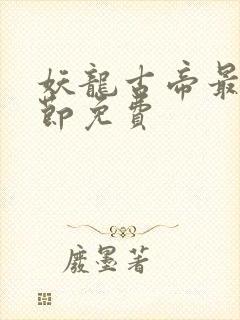 妖龍古帝最
節免費
廢墨著